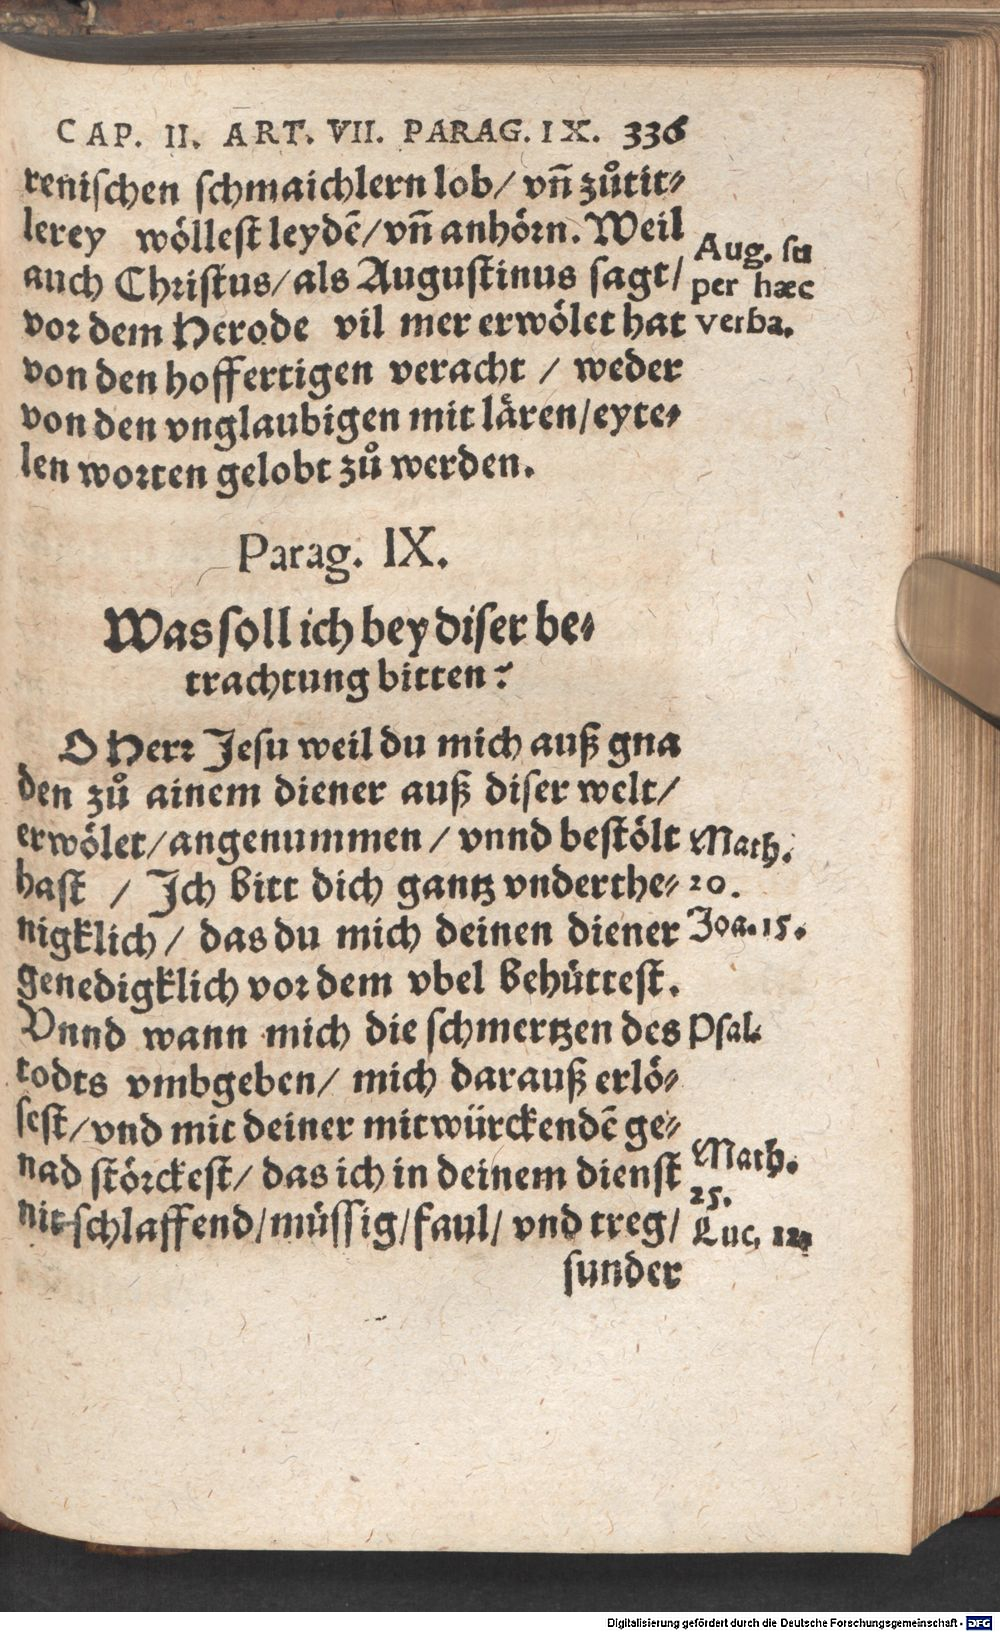 CAP. II. ART. VII. PARAG. IX. 336
renischen schmaichlern lob/ vñ zůtit⸗
lerey wöllest leydē/ vñ anhörn. Weil
auch Christus/ als Augustinus sagt/
Aug. su
per hæc
verba.
vor dem Herode vil mer erwölet hat
von den hoffertigen veracht / weder
von den vnglaubigen mit lären/ eyte⸗
len worten gelobt zů werden.
Parag. IX.
Was soll ich bey diser be⸗
trachtung bitten?
O Herr Jesu weil du mich auß gna
den zů ainem diener auß diser welt/
erwölet/ angenummen / vnnd bestölt
Math.
20.
Joa. 15.
hast / Ich bitt dich gantz vnderthe⸗
nigklich/ das du mich deinen diener
genedigklich vor dem vbel behüttest.
Vnnd wann mich die schmertzen des
Psal.
todts vmbgeben/ mich darauß erlö⸗
sest/ vnd mit deiner mitwürckendē ge⸗
nad störckest/ das ich in deinem dienst
Math.
25.
Luc. 12.
nit schlaffend/ müssig/ faul/ vnd treg/
sunder
Digitalisierung gefördert durch die Deutsche Forschungsgemeinschaft - DFG